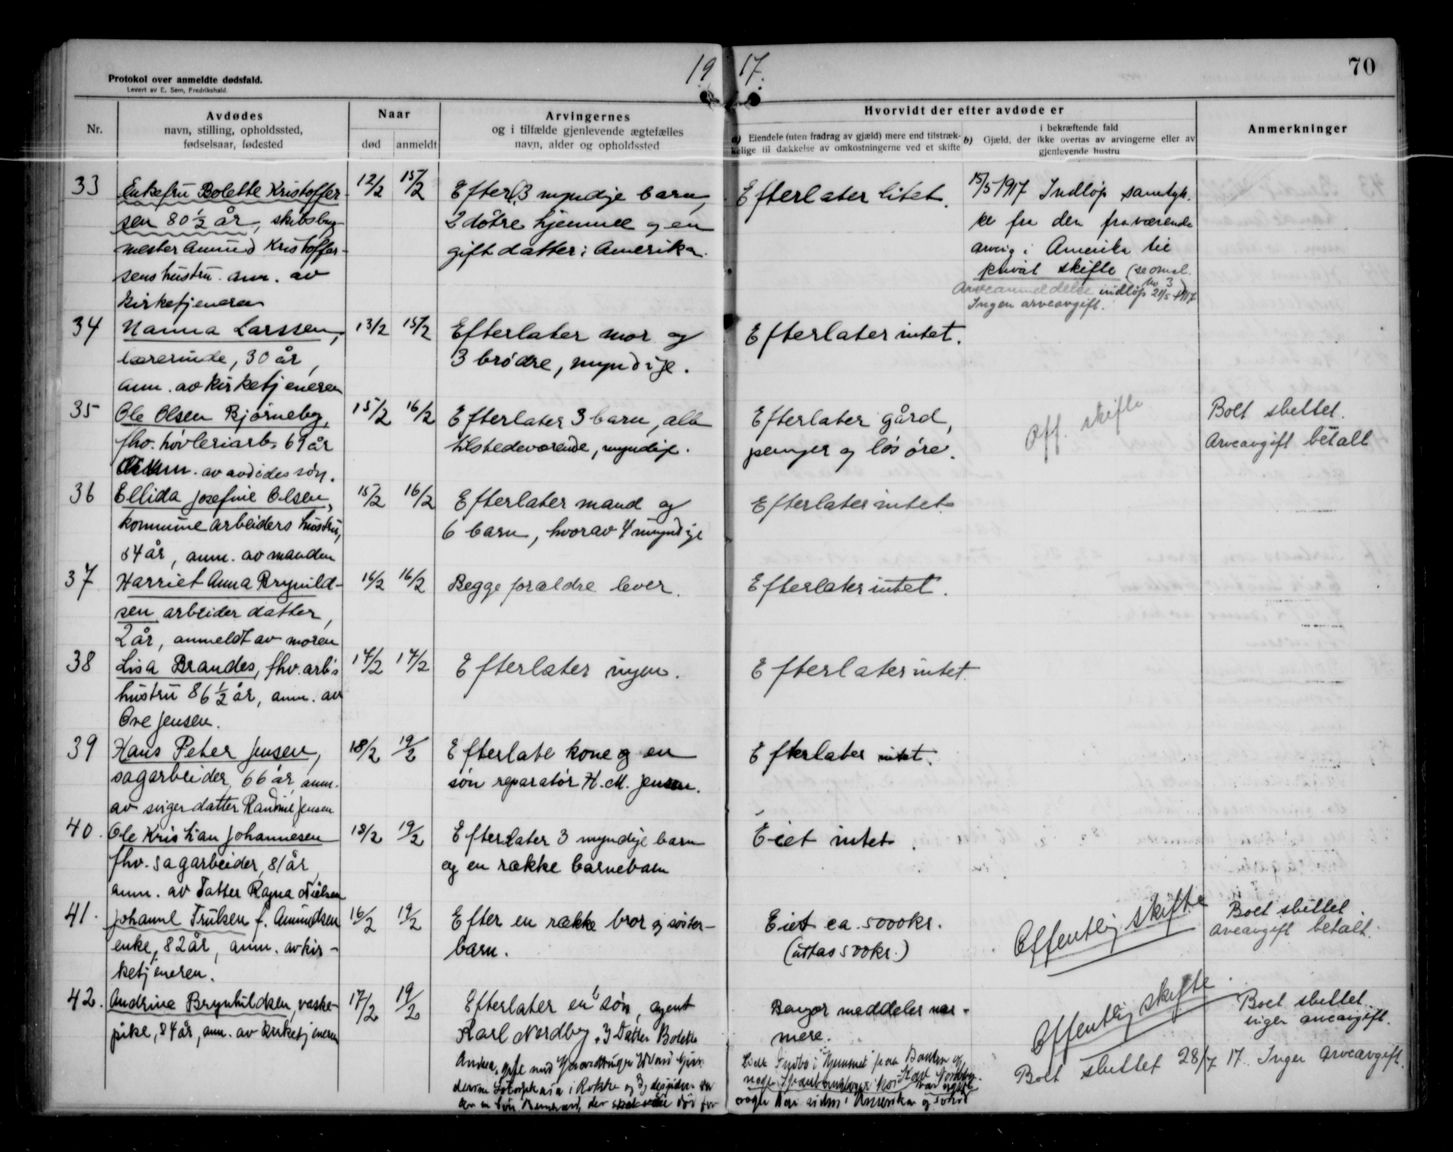 Protokol over anmeldte dødsfald.
Levert av E. Sem, Fredrikshald.
19 17.
70
Nr.
Avdødes
navn, stilling, opholdssted,
fødselsaar, fødested
Naar
død
anmeldt
Arvingernes
og i tilfælde gjenlevende ægtefælles
navn, alder og opholdssted
Hvorvidt der efter avdøde er
a) Eiendele (uten fradrag av gjæld) mere end tilstræk-
kelige til dækkelse av omkostningerne ved et skifte
i bekræftende fald
b) Gjæld, der ikke overtas av arvingerne eller av
gjenlevende hustru
Anmerkninger
33
Enkefru Bolette Kristoffer
sen 80 ½ år, skibsbyg
mester Amund Kristoffer-
sens hustru anm. av
kirketjeneren
12/2
15/2
Efterl. 3 myndije barn,
2 døtre hjemme og en
gift datter i Amerika.
Efterlater litet.
15/5 1917 Indløp samtyk
ke fra den fraværende
arving i Amerika til
privat skifte (se omsl.
No 3)
Arveanmeldelse indløp 21/5 1917
Ingen arveavgift.
34
Nanna Larssen,
lærerinde, 30 år,
anm. av kirketjeneren
13/2
15/2
Efterlater mor og
3 brødre, myndije.
Efterlater intet.
35
Ole Olsen Bjørneby,
fhv. høvleriarb, 69 år
anm. av avdødes søn.
15/2
16/2
Efterlater 3 barn, alle
tilstedeværende, myndije.
Efterlater gård,
penger og løsøre.
Off. skifte
Boet sluttet.
Arveavgift betalt
36
Ellida Josefine Olsen,
kommunearbeiders hustru,
54 år, anm. av manden
15/2
16/2
Efterlater mand og
6 barn, hvorav 4 myndije
Efterlater intet
37
Harriet Anna Brynild-
sen arbeider datter,
2 år, anmeldt av moren
16/2
16/2
Begge forældre lever.
Efterlater intet.
38
Lisa Brandes, fhv. arb's
hustru 86 ½ år, anm. av
Ove Jensen.
14/2
17/2
Efterlater ingen.
Efterlater intet
39
Hans Peter Jensen,
sagarbeider, 66 år, anm.
av svigerdatter Randine Jensen
18/2
19/2
Efterlate kone og en
søn reparatør H. M. Jensen.
Efterlater intet.
40.
Ole Kristian Johannesen
fhv. sagarbeider, 81 år,
anm. av datter Ragna Nielsen
18/2
19/2
Efterlater 3 myndije barn
og en række barnebarn
Eiet intet.
41.
Johanne Trulsen f. Amundsen
enke, 82 år, anm. av kir-
ketjeneren.
16/2
19/2
Efter en række bror og søster-
barn.
Eiet ca. 5000 kr.
(uttas 500 kr.)
Offentlig skifte
Boet sluttet
arveavgift betalt.
42.
Andrine Brynhildsen, vaske-
pike, 84 år, anm. av kirketjeneren
17/2
19/2
Efterlater en søn, agent
Karl Nordby. 3 Datter Bolette
i Rokke og
Bangor meddeler nær-
mere.
Offentlig skifte.
Boet sluttet
ingen arveavgift.
Boet sluttet 28/7 17. Ingen arveavgift.